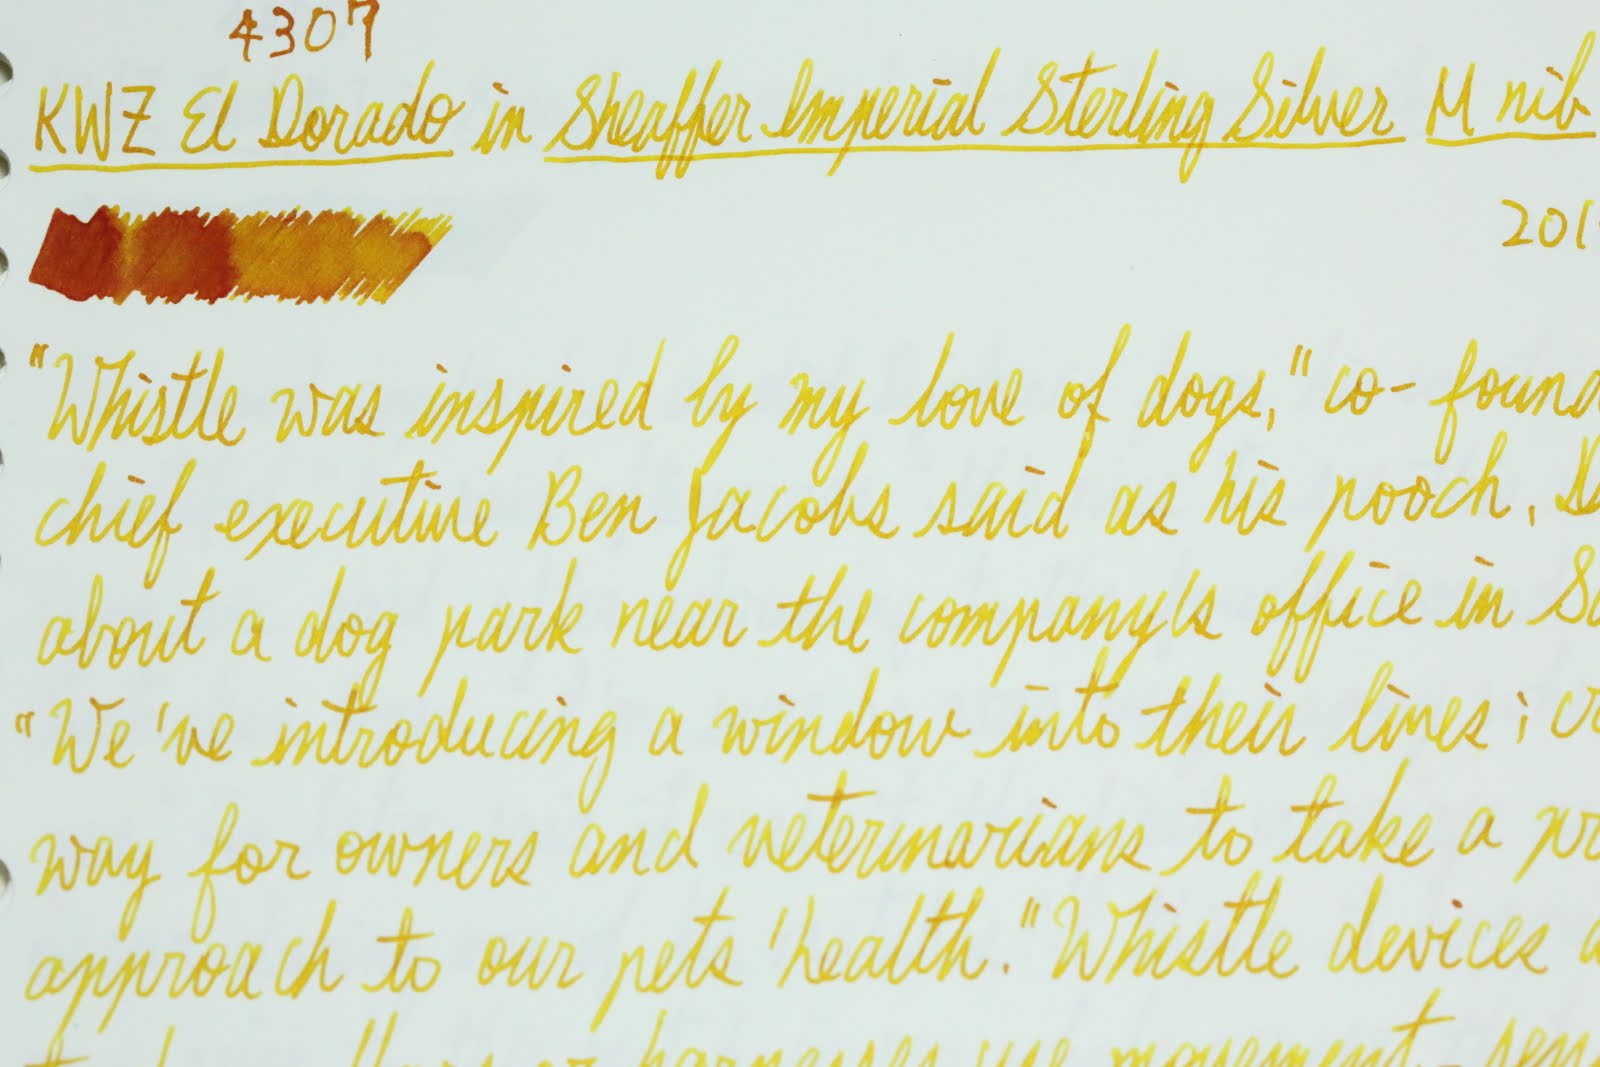 4307
KWZ El Dorado in Sheaffer Imperial Sterling Silver M nib
201
"Whistle was inspired by my love of dogs," co-found
chief executive Ben Jacobs said as his pooch,
about a dog park near the company's office in
"We've introducing a window into their lives;
way for owners and veterinarians to take a
approach to our pets' health." Whistle devices
or harnesses use movement-sen